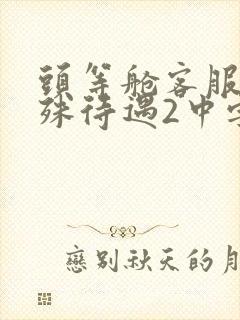 頭等舱客服
殊待遇2中字
戀别秋天的月